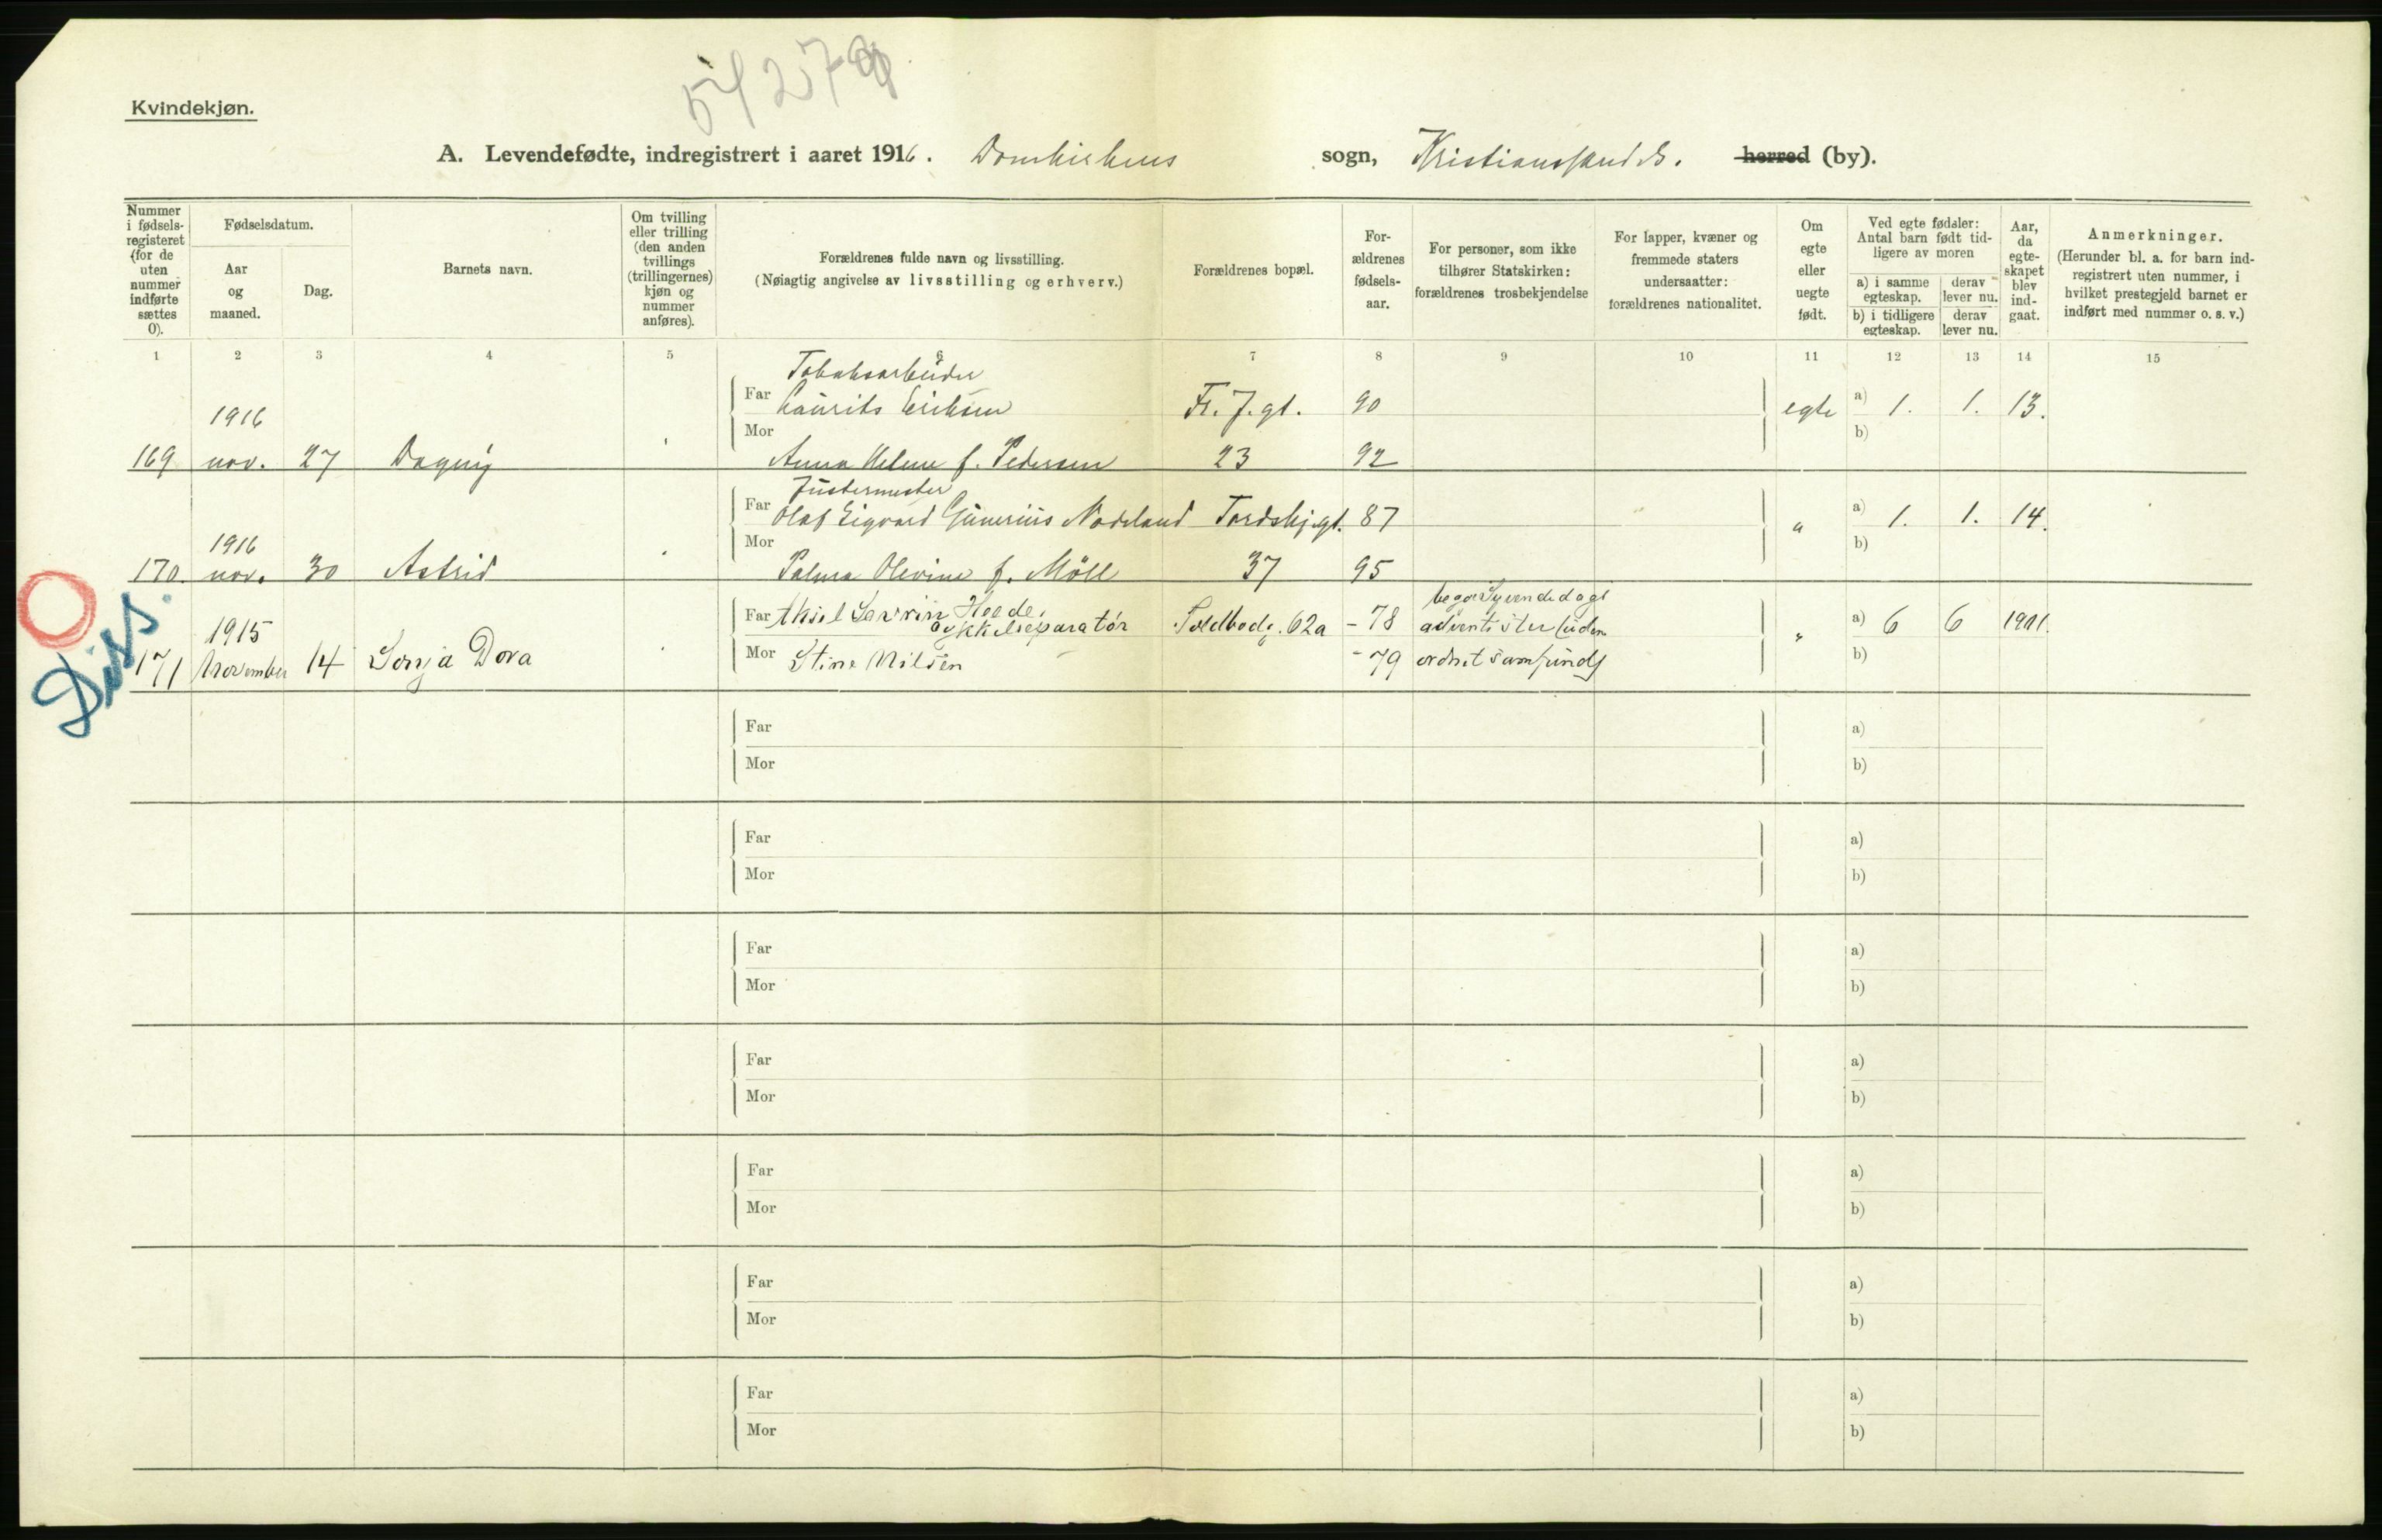 Kvindekjøn.
A. Levendefødte, indregistrert i aaret 1916. Domkirkens sogn, Kristianssands. herred (by).
Nummer i fødselsregisteret (for de uten nummer indførte sættes 0).
Fødselsdatum.
Aar og maaned.
Dag.
Barnets navn.
Om tvilling eller trilling (den anden tvillings (trillingernes) kjøn og nummer anføres).
Forældrenes fulde navn og livsstilling.
(Nøiagtig angivelse av livsstilling og erhverv.)
Forældrenes bopæl.
Forældrenes fødselsaar.
For personer, som ikke tilhører Statskirken: forældrenes trosbekjendelse
For lapper, kvæner og fremmede staters undersaatter: forældrenes nationalitet.
Om egte eller uegte født.
Ved egte fødsler: Antal barn født tidligere av moren
a) i samme egteskap.
derav lever nu.
b) i tidligere egteskap.
derav lever nu.
Aar, da egteskapet blev indgaat.
Anmerkninger.
(Herunder bl. a. for barn indregistrert uten nummer, i hvilket prestegjeld barnet er indført med nummer o. s. v.)
1 2 3 4 5 6 7 8 9 10 11 12 13 14 15
Tobaksarbeider
Far Laurits Eriksen Fr. 7. gt. 90 egte a) 1. 1. 13.
1916
Mor b)
169 nov. 27 Dagny Anna Helene f. Pedersen 23 92
Justermester
Far Olaf Sigvard Gunerius Nodeland Tordskj.gt. 87 " a) 1. 1. 14.
1916
Mor b)
170. nov. 30 Astrid Palma Olevine f. Möll 37 95
Diss.
begge Syvendedags
Far Aksel Sevrin Heede, Toldbodg. 62a - 78 adventister (uden " a) 6 6 1901.
nykkelseparatør
1915
171 November 14 Sonja Dora Mor Stine Nilsen - 79 ordnet samfund) b)
Far a)
Mor b)
Far a)
Mor b)
Far a)
Mor b)
Far a)
Mor b)
Far a)
Mor b)
Far a)
Mor b)
Far a)
Mor b)